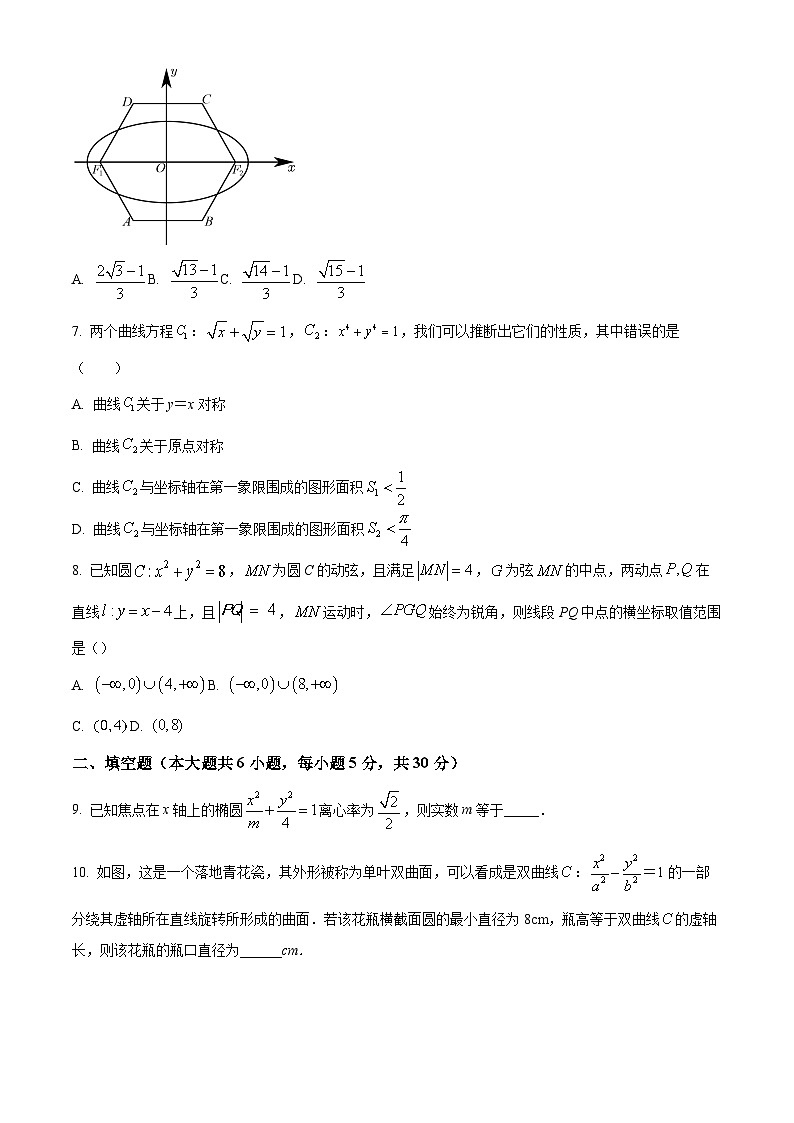 y
D C
F₁ O F₂ x
A B
A. (2√3−1)/3 B. (√13−1)/3 C. (√14−1)/3 D. (√15−1)/3
7. 两个曲线方程C₁:√x+√y=1,C₂:x⁴+y⁴=1,我们可以推断出它们的性质,其中错误的是
( )
A. 曲线C₁关于y=x对称
B. 曲线C₂关于原点对称
C. 曲线C₂与坐标轴在第一象限围成的图形面积S₁<1/2
D. 曲线C₂与坐标轴在第一象限围成的图形面积S₂<π/4
8. 已知圆C:x²+y²=8,MN为圆C的动弦,且满足|MN|=4,G为弦MN的中点,两动点P,Q在
直线l:y=x−4上,且|PQ|=4,MN运动时,∠PGQ始终为锐角,则线段PQ中点的横坐标取值范围
是()
A. (−∞,0)∪(4,+∞)B. (−∞,0)∪(8,+∞)
C. (0,4)D. (0,8)
二、填空题(本大题共6小题,每小题5分,共30分)
9. 已知焦点在x轴上的椭圆x²/m+y²/4=1离心率为√2/2,则实数m等于_____.
10. 如图,这是一个落地青花瓷,其外形被称为单叶双曲面,可以看成是双曲线C:x²/a²−y²/b²=1的一部
分绕其虚轴所在直线旋转所形成的曲面.若该花瓶横截面圆的最小直径为8cm,瓶高等于双曲线C的虚轴
长,则该花瓶的瓶口直径为______cm.